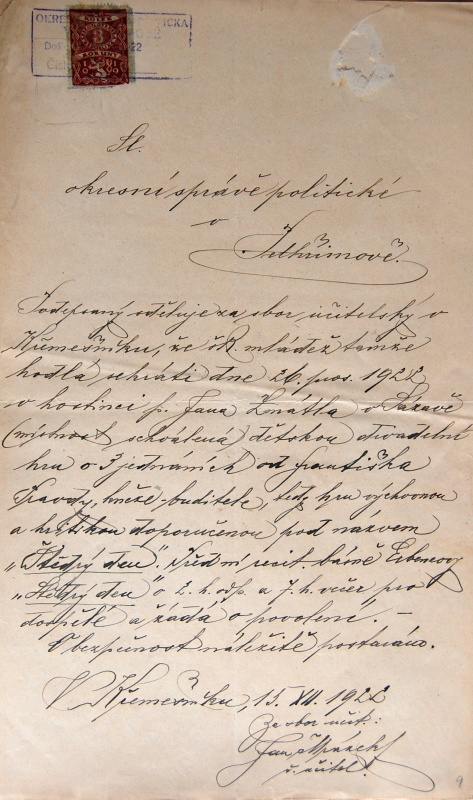 OKRE ICKA
Doš 22
KOLEK
3
KORUNY
1919
Sl.
okresní správě politické
v
Pelhřimově.
Podepsaný sděluje za sbor učitelský v
Křemešníku, že šk. mládež tamže
hodlá sehráti dne 26. pros. 1922
v hostinci p. Jana Zmátla v Sázavě
(místnost schválena) dětskou divadelní
hru o 3 jednáních od Františka
Pravdy, kněze-buditele, tedy hru výchovnou
a kritikou doporučenou pod názvem
„Štědrý den". Před ní recit. básně Erbenovy
„Štědrý den" o 2. h. odp. a 7. h. večer pro
dospělé a žádá o povolení. –
O bezpečnost náležitě postaráno.
V Křemešníku, 15. XII. 1922
Za sbor učit.:
Jan
ř. učitel.
9